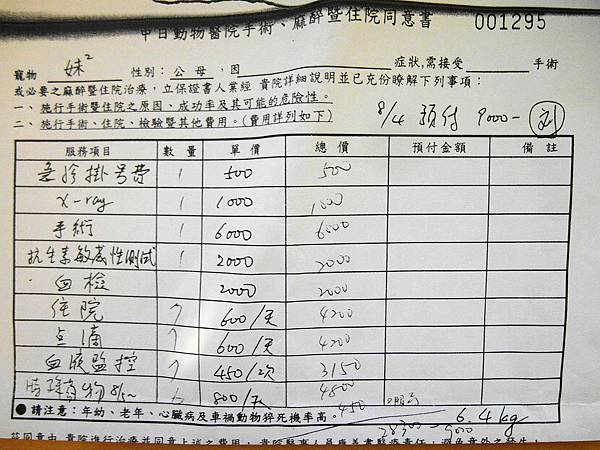 中日動物醫院手術、麻醉暨住院同意書 001295
寵物 妹2 性別：公 母，因 症狀,需接受 手術
或必要之麻醉暨住院治療，立保證書人業經 貴院詳細說明並已充份瞭解下列事項：
一、施行手術暨住院之原因、成功率及其可能的危險性。
二、施行手術、住院、檢驗暨其他費用。(費用詳列如下) 8/4 預付 9000- 刷
服務項目 數量 單價 總價 預付金額 備註
急診掛号費 1 500 500
X-ray 1 1000 1000
手術 1 6000 6000
抗生素敏感性測試 1 2000 2000
血檢 2000 2000
住院 7 600/天 4200
点滴 7 600/天 4200
血液監控 7 450/次 3150
物 8/5~ 6 800/天 4800
●請注意：年幼、老年、心臟病及車禍動物猝死機率高。 450 6.4kg
28300-9000
茲同意由 貴院進行治療並同意上述之費用，貴院醫事人員應善盡醫療責任，避免意外之發生，